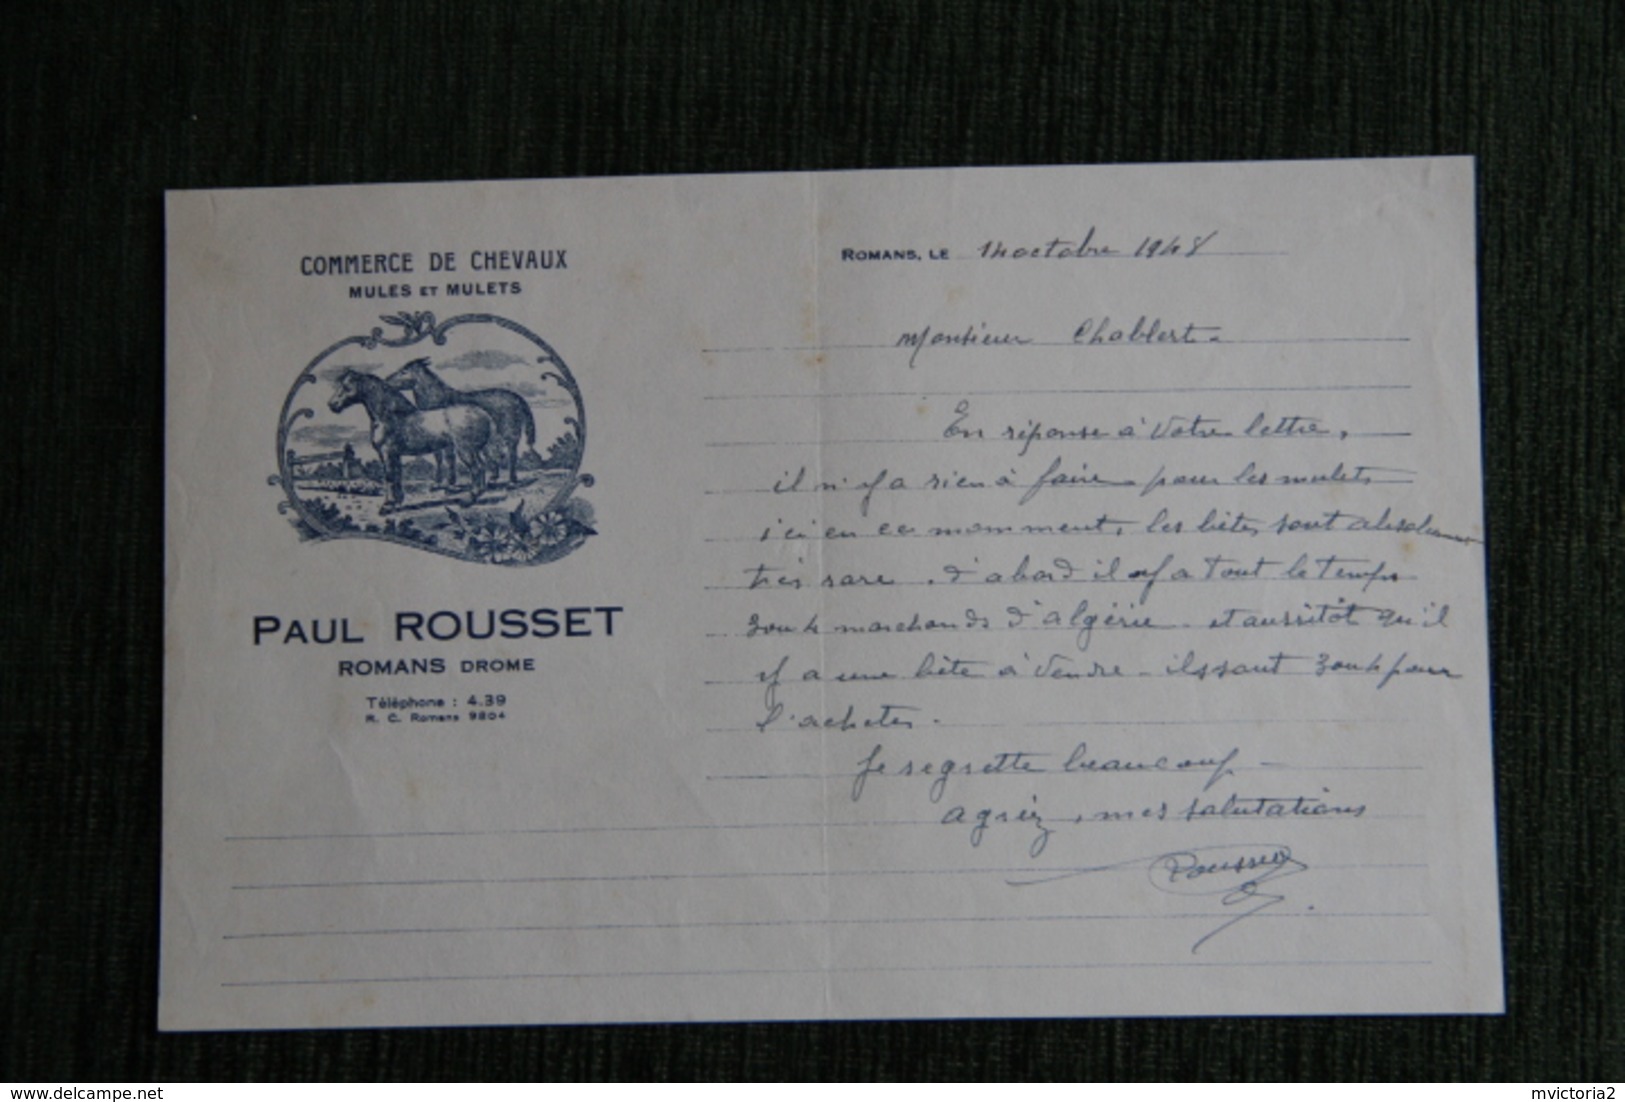 COMMERCE DE CHEVAUX
MULES ET MULETS
PAUL ROUSSET
ROMANS DROME
Téléphone : 4.39
R. C. Romans 9804
ROMANS, LE 14 octobre 1948
Monsieur Chablert.
En réponse à votre lettre,
il n'y a rien à faire pour les mulets
ici en ce momment, les bêtes sont absolument
très rare. d'abord il y a tout le temps
3 ou 4 marchands d'algérie et aussitôt qu'il
y a une bête à vendre - ils sont 3 ou 4 pour
l'acheter.
Je regrette beaucoup -
agréez, mes salutations
Rousset
mvictoria2